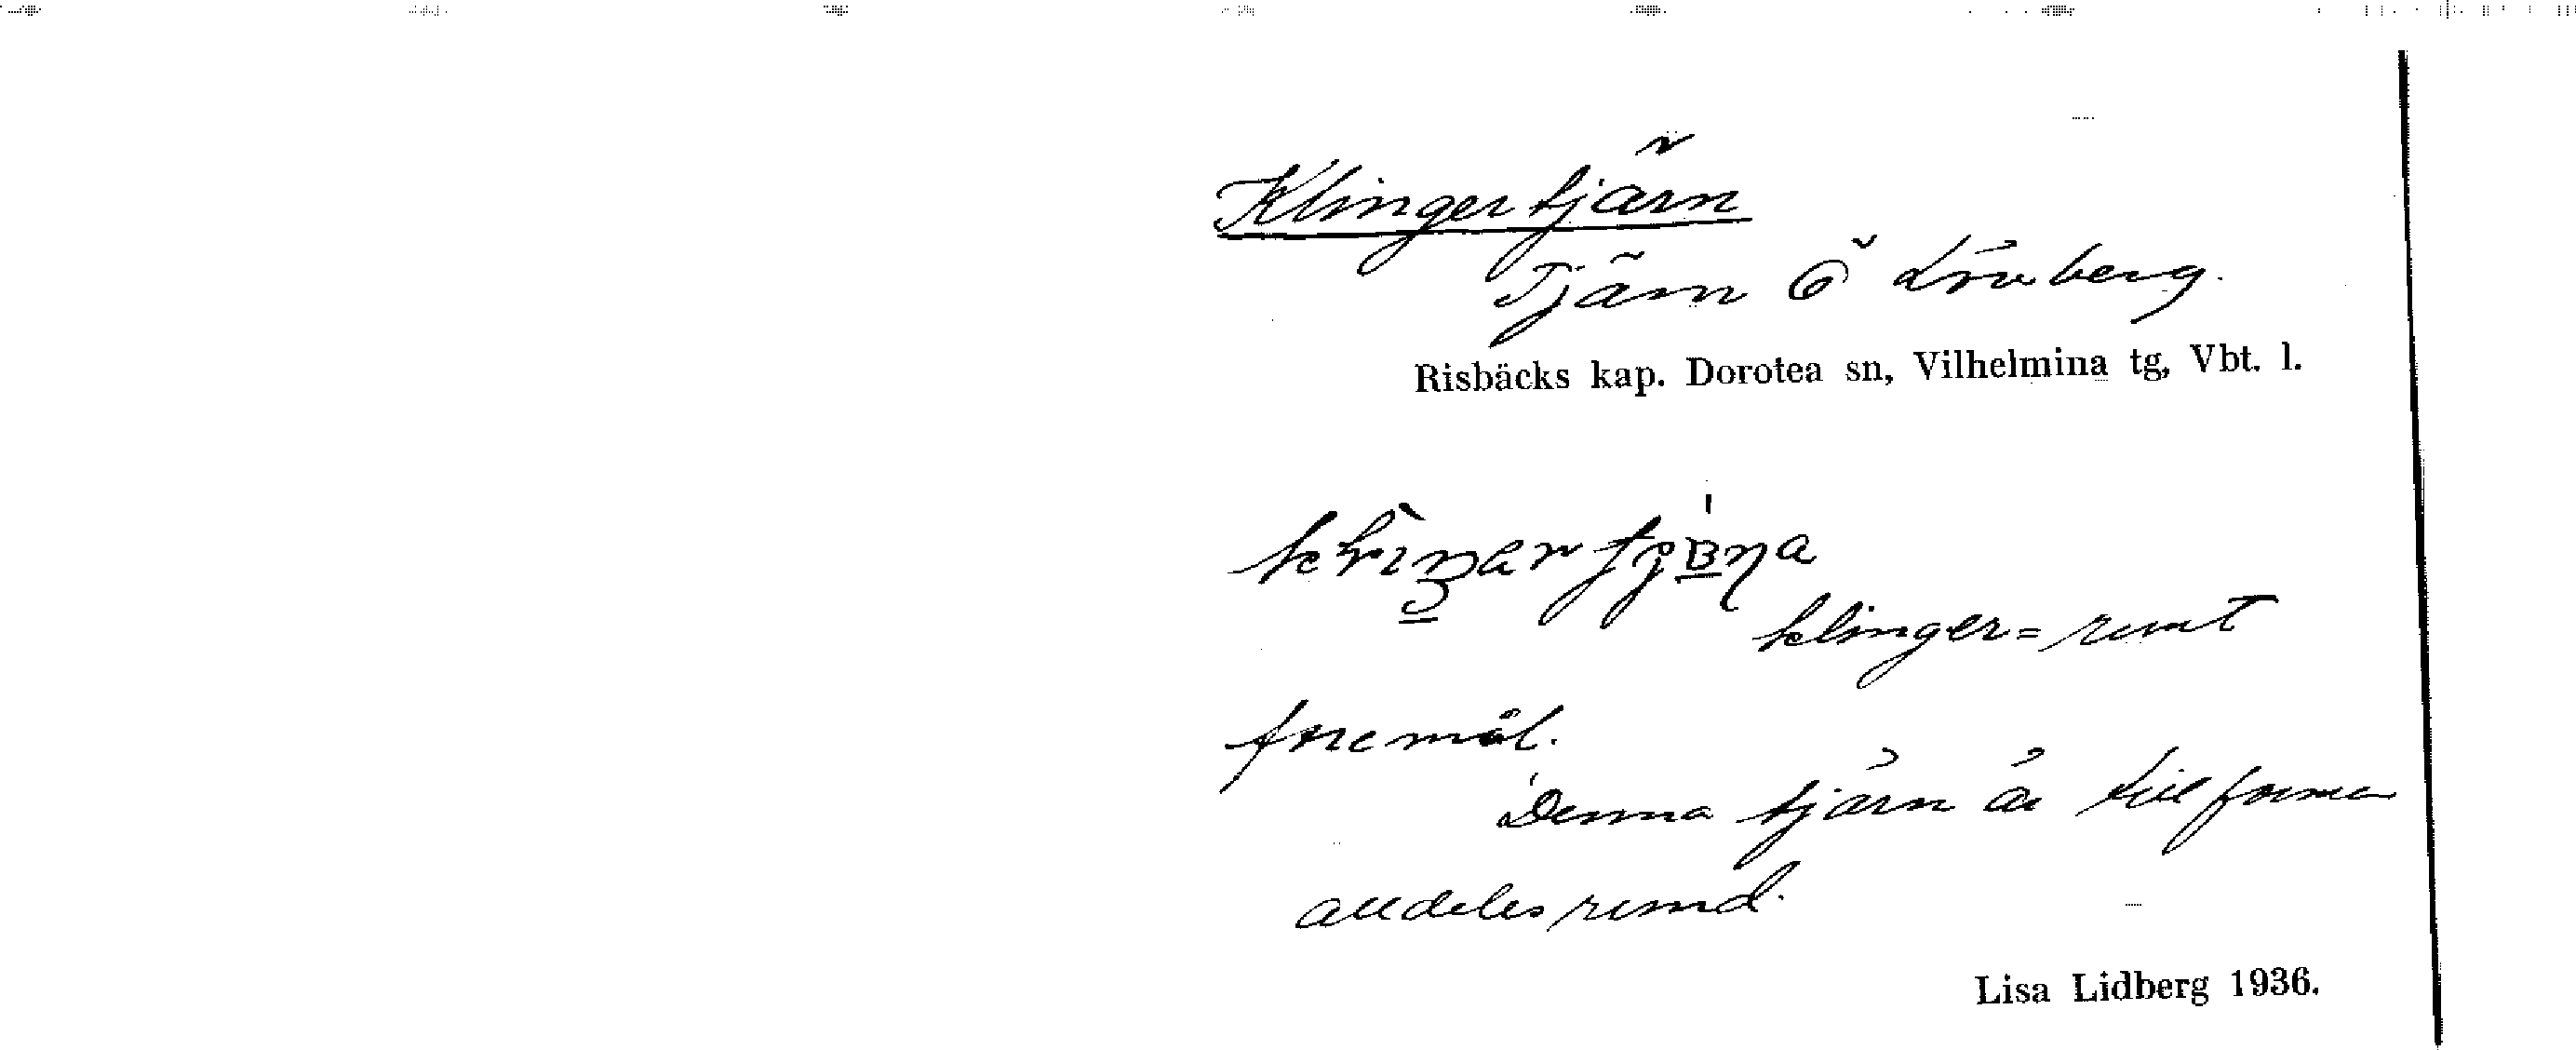 Klingertjärn
Tjärn Ö Lövberg.
Risbäcks kap. Dorotea sn, Vilhelmina tg, Vbt. l.
klinger = runt
föremål.
Denna tjärn är till formen
alldeles rund.
Lisa Lidberg 1936.